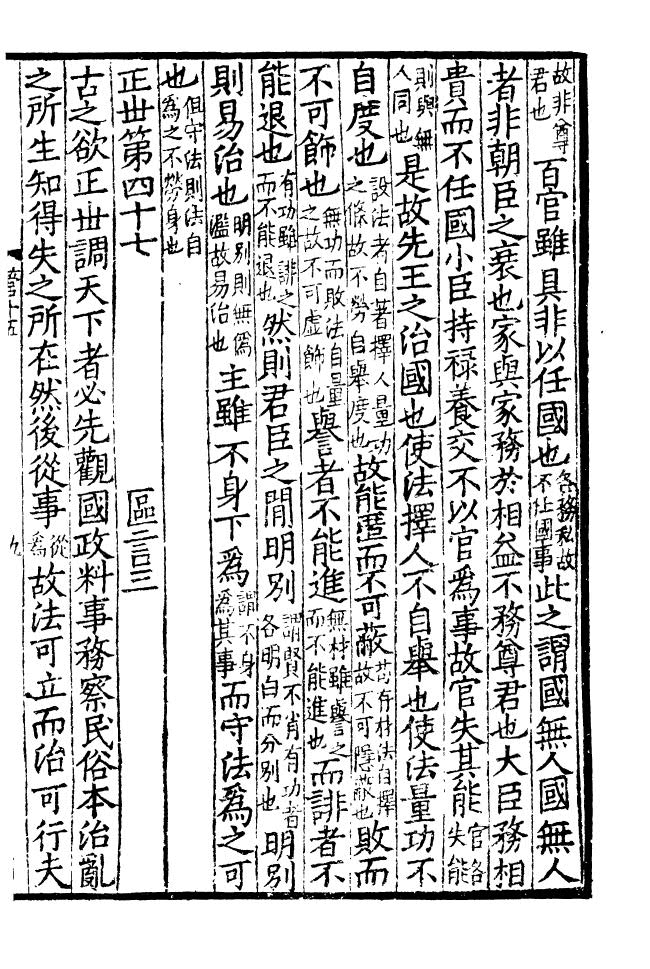 故非尊君也百官雖具非以任國也各務私故不任國事此之謂國無人國無人
者非朝臣之衰也家與家務於相益不務尊君也大臣務相
貴而不任國小臣持祿養交不以官爲事故官失其能官各失能
則與無人同也是故先王之治國也使法擇人不自舉也使法量功不
自度也設法者自著擇人量功之條故不勞自舉度也故能匿而不可蔽苟有材法自擇故不可隱蔽也敗而
不可飾也無功而敗法自量之故不可虛飾也譽者不能進無材雖譽之而不能進也而誹者不
能退也有功雖誹之而不能退也然則君臣之閒明别謂賢不肖有功者各明白而分别也明别
則易治也明别則無僞濫故易治也主雖不身下爲謂不身爲其事而守法爲之可
也但守法則法自爲之不勞身也
正世第四十七 區言三
古之欲正世調天下者必先觀國政料事務察民俗本治亂
之所生知得失之所在然後從事從爲故法可立而治可行夫
管十五 九